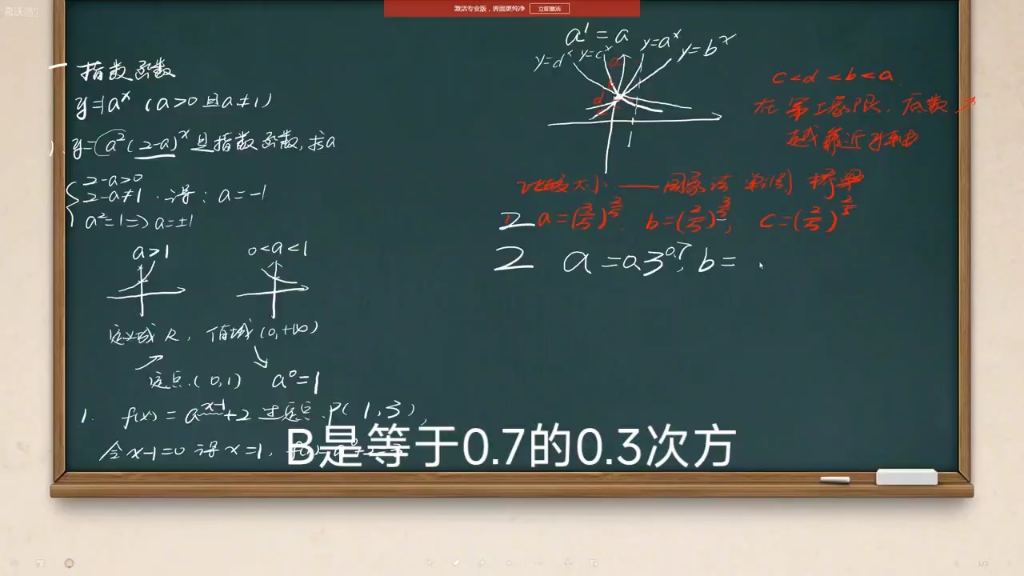 激活专业版，界面更纯净 立即激活
一 指数函数
y=a^x (a>0且a≠1)
y=a²(2-a)^x 且指数函数，求a
2-a>0
2-a≠1 . 得: a=-1
a²=1=>a=±1
a>1 0<a<1
定义域 R, 值域(0,+∞)
定点.(0,1) a⁰=1
1. f(x)=a^{x-1}+2 过定点 P(1,3),
令x-1=0 得x=1,
a¹=a
y=d^x y=c^x y=a^x y=b^x
c<d<b<a
在第一象限，底数
越靠近y轴
比较大小——图象法
1
2 a=a3^{0.7}, b=
B是等于0.7的0.3次方